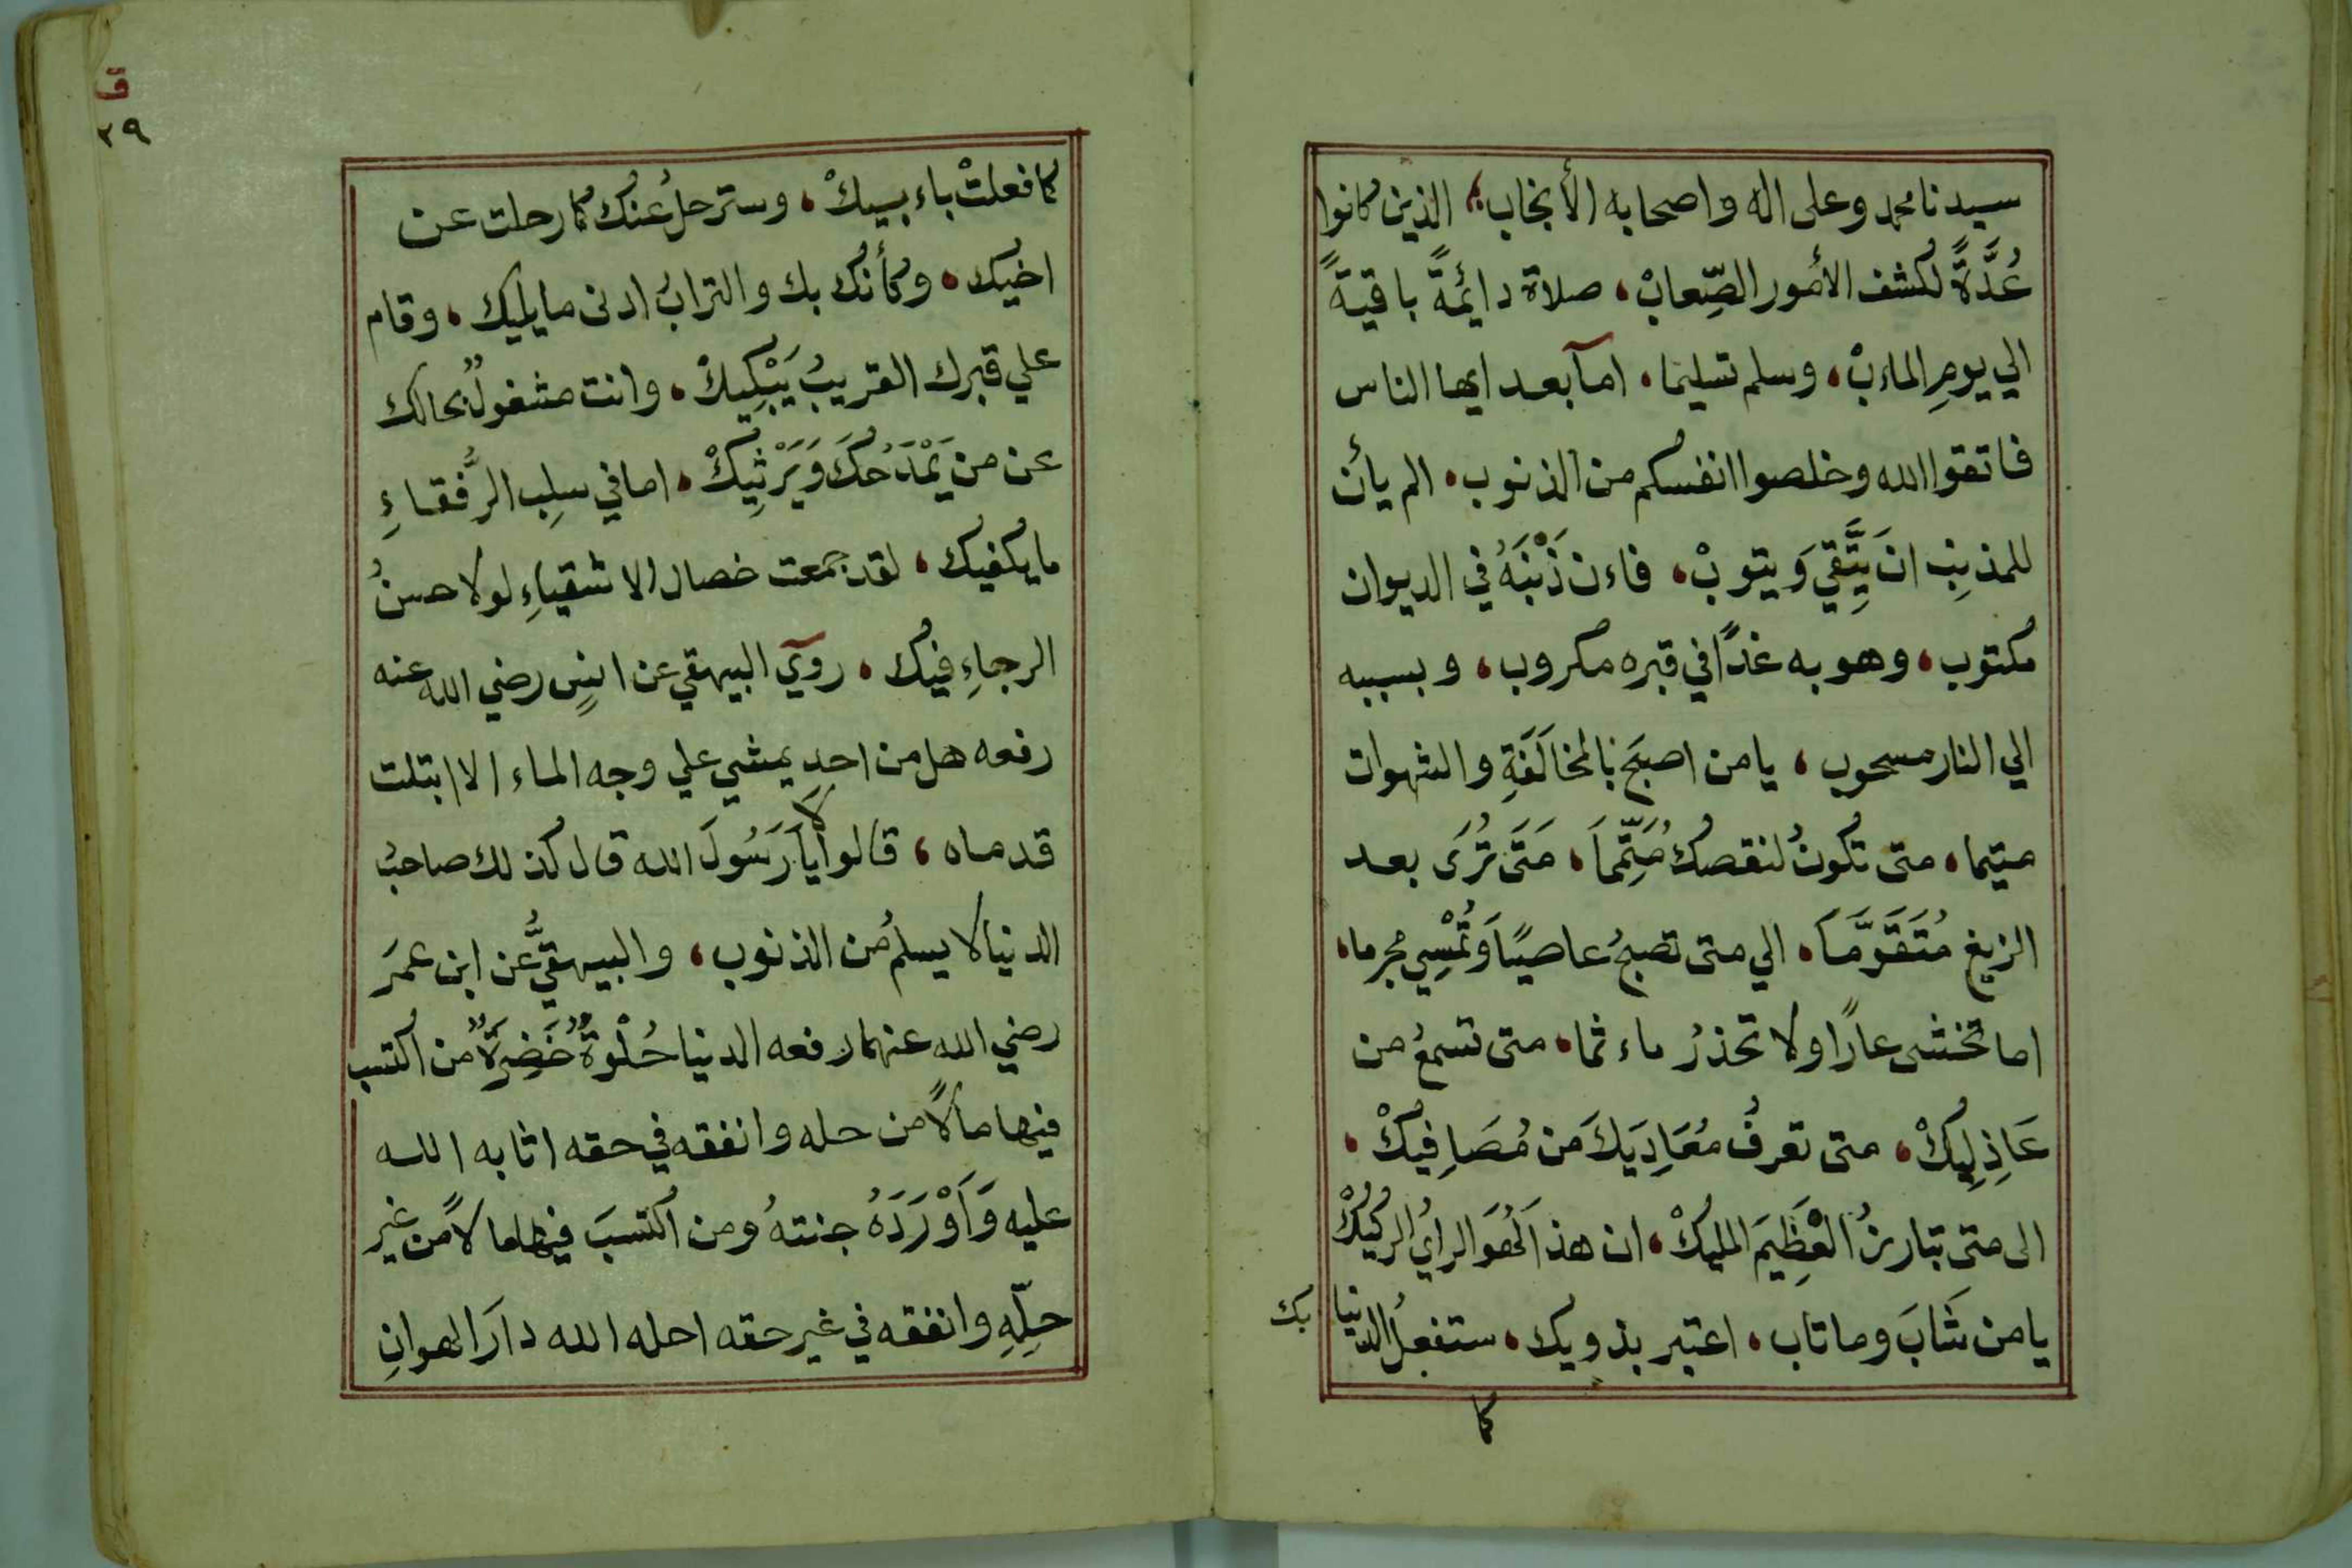 سيدنا محمد وعلى اله واصحابه الأنجاب، الذين كانوا
عُدَّةً لكشف الأمور الصِّعابْ، صلاة دايُمةً باقيةً
الي يومِ الماءبْ، وسلم تسليما، امآ بعد ايها الناس
فاتقوا الله وخلصوا انفسكم من الذنوب، الم يأن
للمذنبِ انَ يتَّقِيَ ويتوبْ، فاءن ذَنْبَهُ في الديوان
مكتوب، وهو به غدًا في قبره مكروب، وبسببه
الي النار مسحوب، يا من اصبَح بالمخالَفَةِ والشهوات
متيما، متى تكونُ لنقصك مُتَمِّماَ، مَتَى تُرَى بعد
الزيغ مُتَقَوَّمَاَ، الي متى تصبحُ عاصيًا وَتُمْسِي مجرما،
اما تخشى عارًا ولا تحذرُ ماءثما، متى تسمعُ من
عَاذِلِيكْ، متى تعرفُ مُعَادِيَكَ من مُصَافِيكْ،
الى متى تبارزُ العْظِيمَ المليكْ، ان هذا لَهُوَ الرايُ الركيكْ
يا من شَابَ وما تاب، اعتبر بذويك، ستفعلُ الدنيا بك
كما
ق
٢٩
كما فعلتْ باءبيكْ، وسترحلُ عنك كما رحلت عن
اخيك، وكأنك بك والترابُ ادنى ما يليك، وقام
علي قبرك القريبُ يَبْكِيكْ، وانت مشغولٌ بحالك
عن من يَمْدَحُكَ وَيَرْثِيكْ، اما في سلِب الرُّفقاءِ
ما يكفيك، لقد جمعت خصال الاشقياءِ لولا حسنُ
الرجاءِ فيك، رويَ البيهقي عن انسٍ رضي الله عنه
رفعه هل من احدٍ يمشي علي وجه الماء الا ابتلت
قدماه، قالوا لا يَا رَسُولَ الله قال كذلك صاحبُ
الدنيا لا يسلمُ من الذنوب، والبيهقيُّ عن ابن عمَر
رضي الله عنهما رفعه الدنيا حُلْوةٌ خَضِرَةٌ من اكتسب
فيها مالاً من حله وانفقه في حقه اثابه الله
عليه وَاَوْرَدَهُ جنتهُ ومن اكتسبَ فيها مالاً من غير
حلِّهِ وانفقه في غير حقه احله الله دارَ الهوانِ